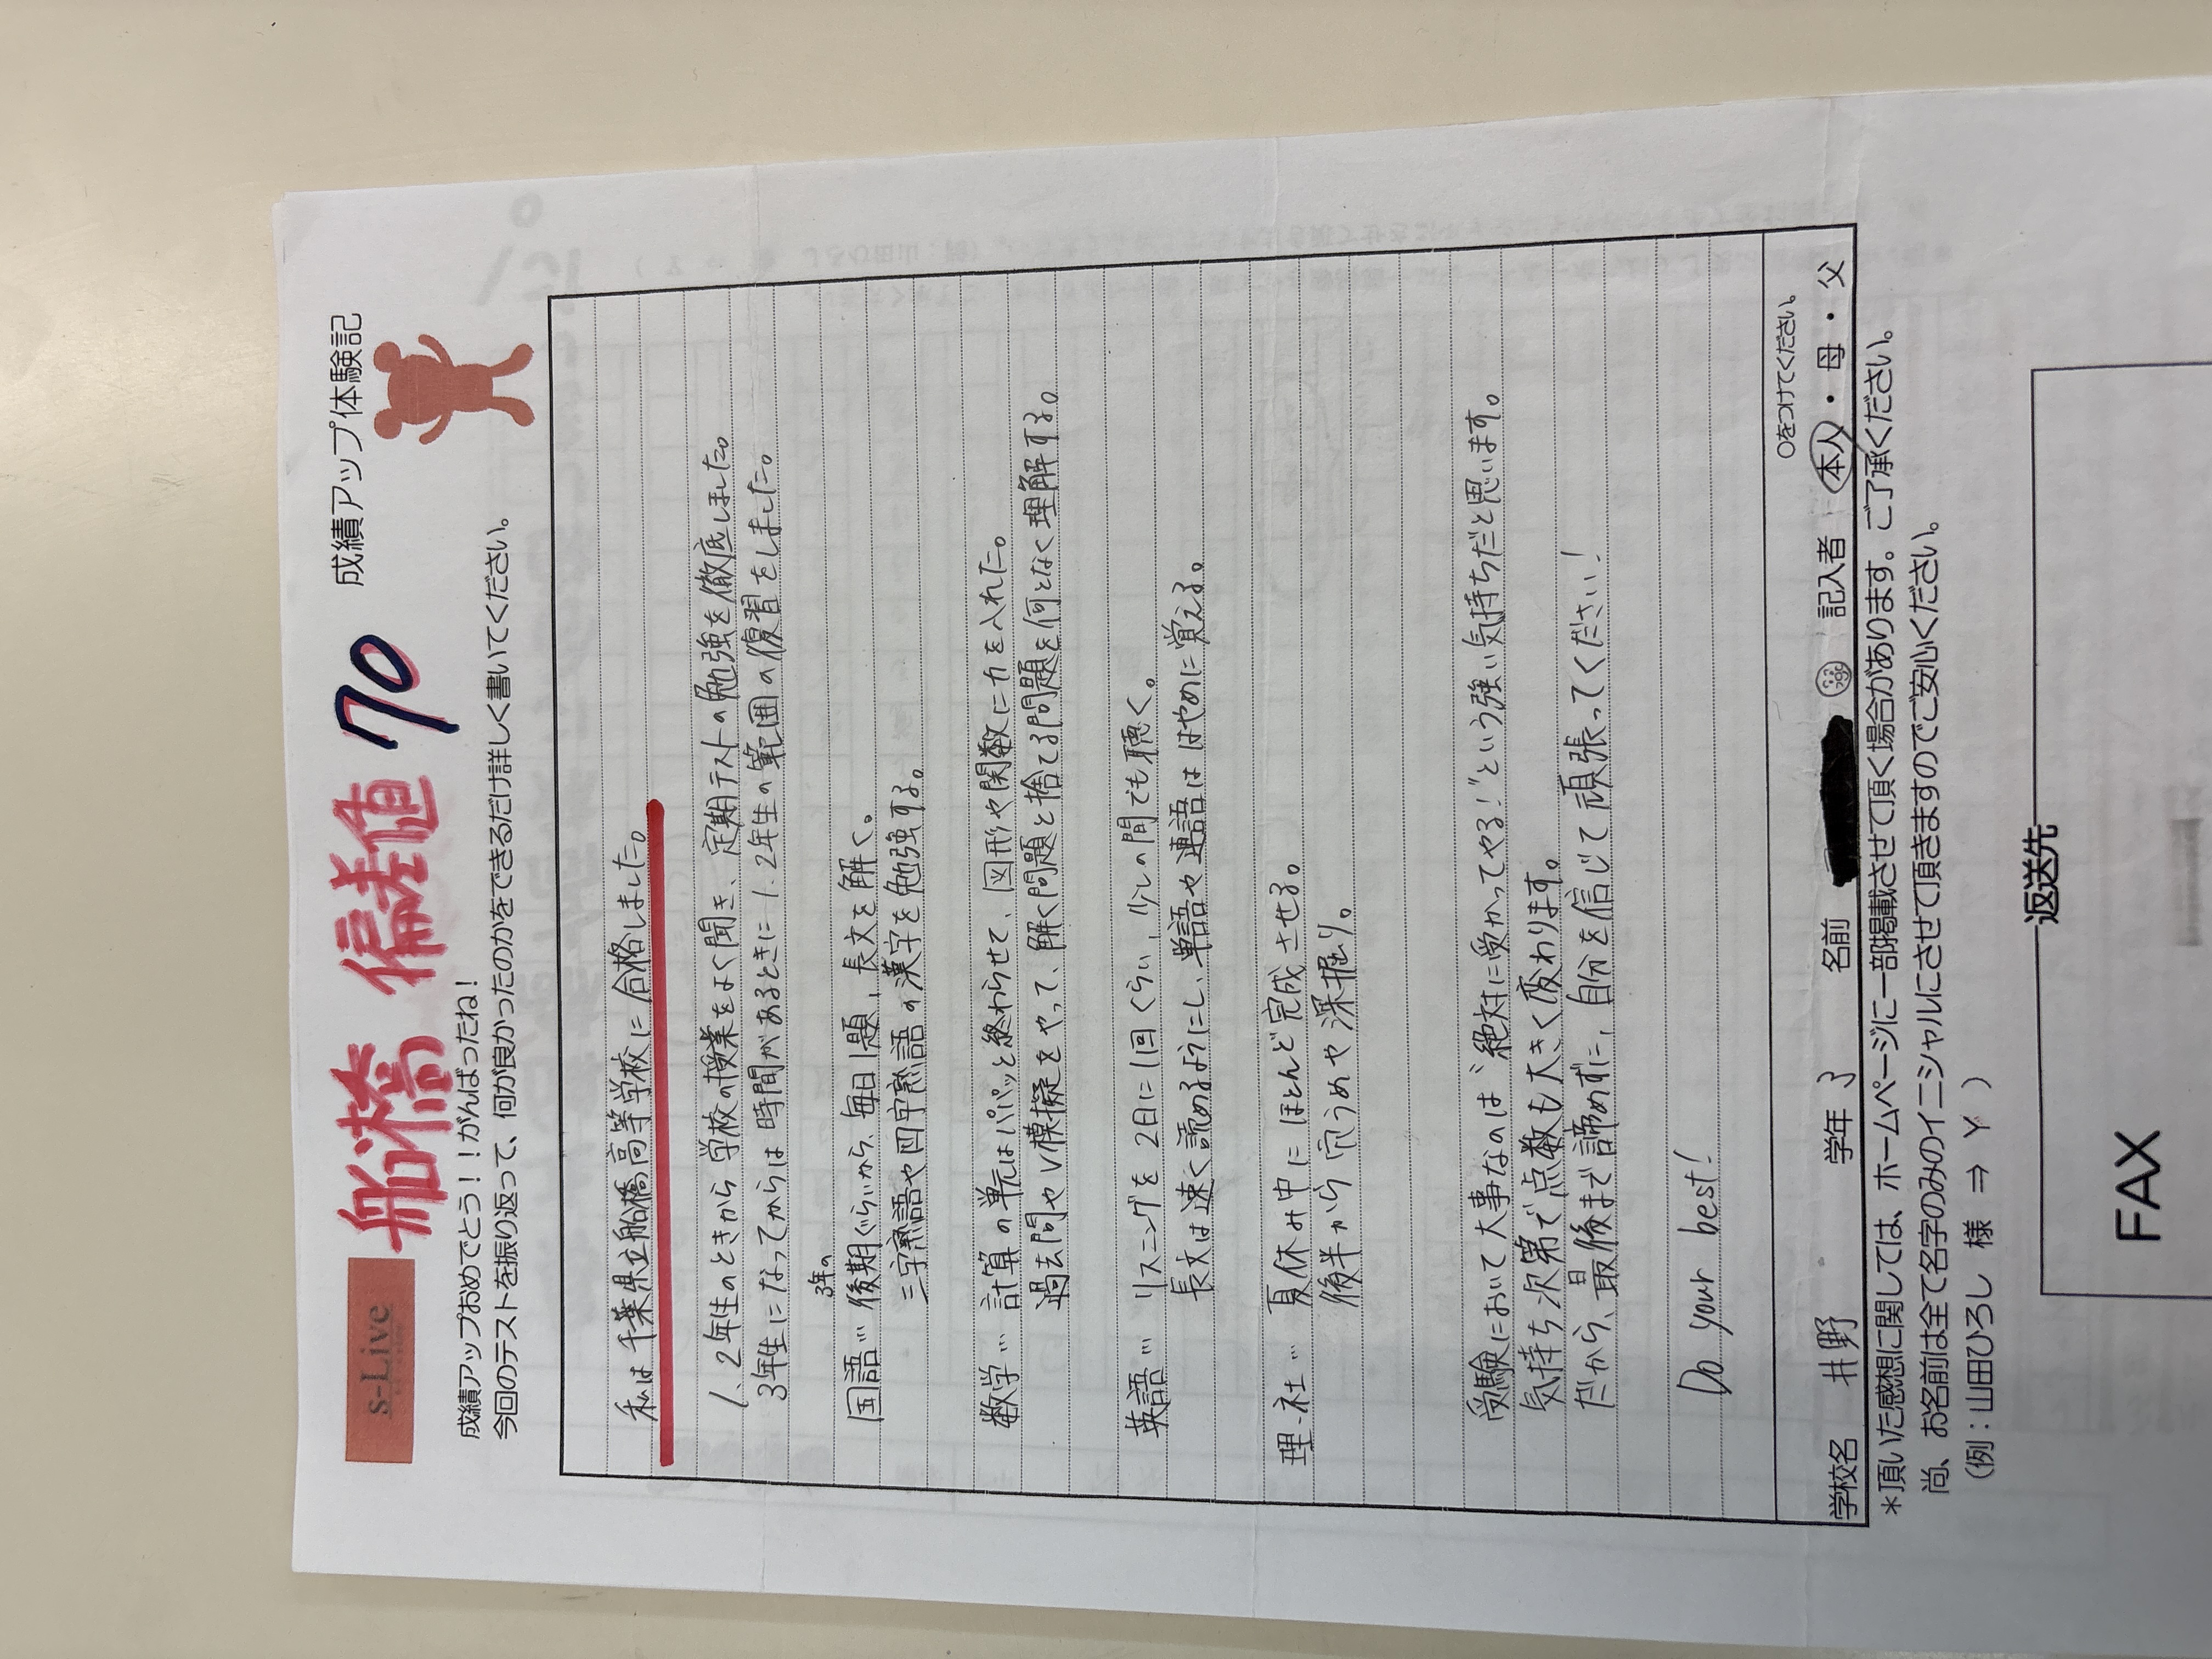 s-Live
船橋 偏差値 70
成績アップ体験記
成績アップおめでとう！！がんばったね！
今回のテストを振り返って、何が良かったのかをできるだけ詳しく書いてください。
私は千葉県立船橋高等学校に合格しました。
1、2年生のときから学校の授業をよく聞き、定期テストの勉強を徹底しました。
3年生になってからは時間があるときに1、2年生の範囲の復習をしました。
3年の
国語… 後期ぐらいから、毎日1題、長文を解く。
三字熟語や四字熟語の漢字を勉強する。
数学… 計算の単元はパパッと終わらせて、図形や関数に力を入れた。
過去問やV模擬をやって、解く問題と捨てる問題を何となく理解する。
英語… リスニングを2日に1回くらい、少しの間でも聴く。
長文は速く読めるようにし、単語や連語ははやめに覚える。
理・社… 夏休み中にほとんど完成させる。
後半から穴うめや深掘り。
受験において大事なのは〝絶対に受かってやる！〟という強い気持ちだと思います。
気持ち次第で点数も大きく変わります。
だから、最後まで諦めずに、自分を信じて頑張ってください！
Do your best!
○をつけてください。
学校名 井野 学年 3 名前 記入者 本人・母・父
＊頂いた感想に関しては、ホームページに一部掲載させて頂く場合があります。ご了承ください。
尚、お名前は全て名字のみのイニシャルにさせて頂きますのでご安心ください。
（例：山田ひろし 様 ⇒ Y ）
返送先
FAX